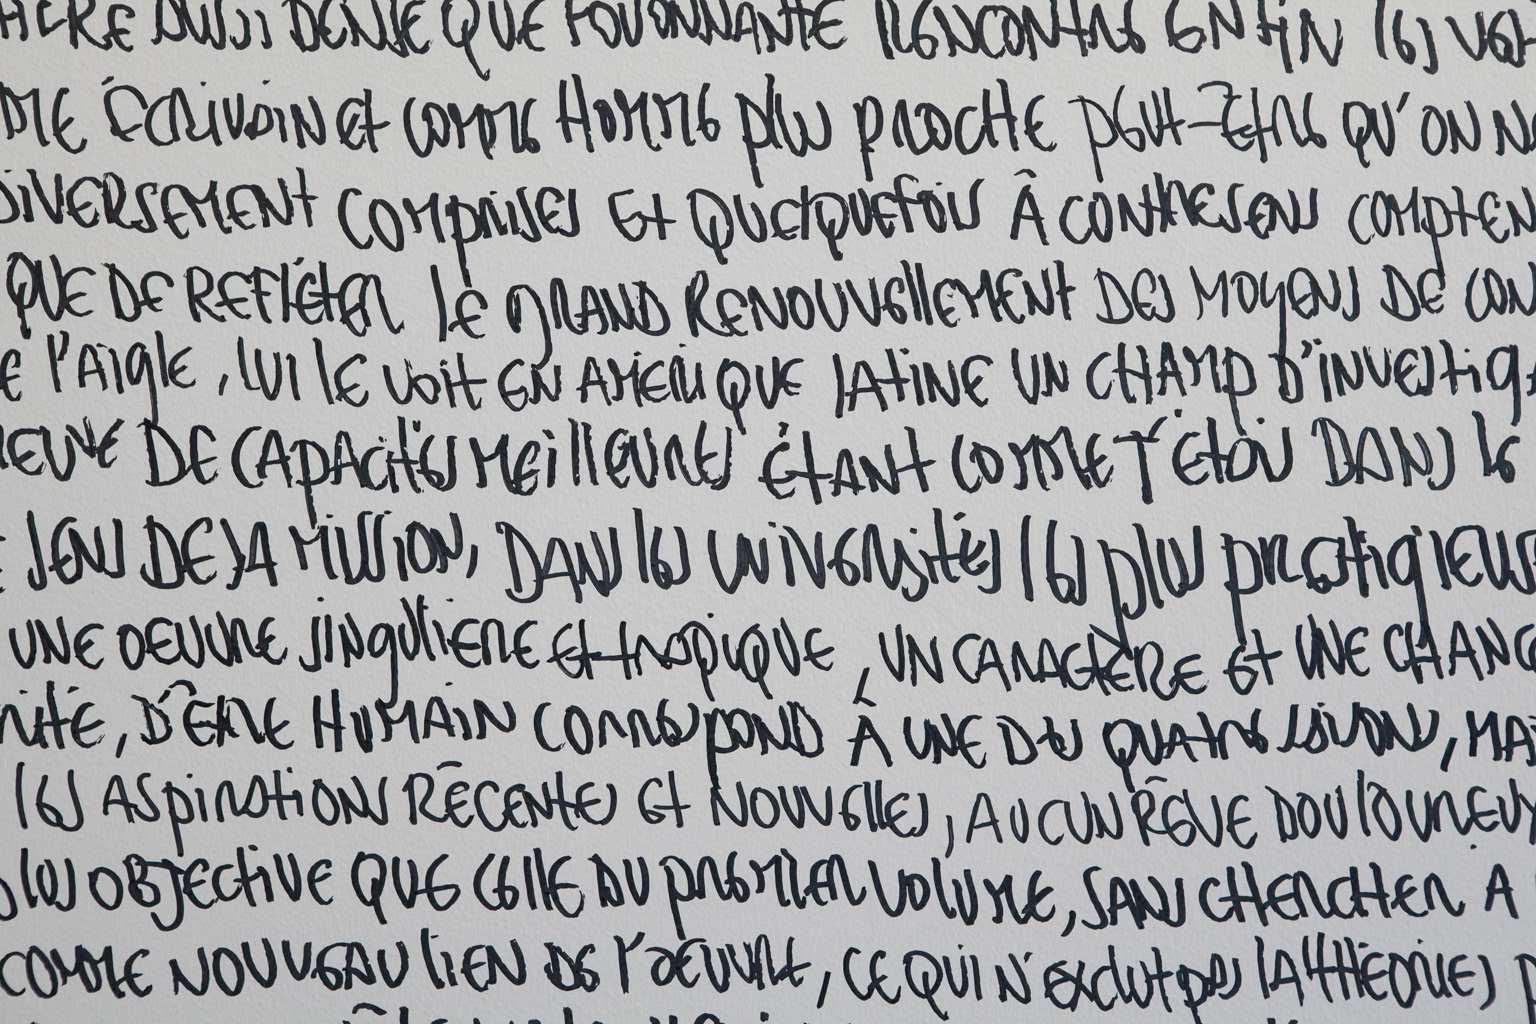 AUSSI DENSE QUE FOISONNANTE RENCONTRE ENFIN LES
ÉCRIVAIN ET COMME HOMME PLUS PROCHE PEUT-ÊTRE QU'ON
DIVERSEMENT COMPRISES ET QUELQUEFOIS À CONTRESENS
QUE DE REFLÉTER LE GRAND RENOUVELLEMENT DES MOYENS DE CON
E L'AIGLE, LUI LE VOIT EN AMERIQUE LATINE UN CHAMP D'INVESTIGA
DE CAPACITÉS MEILLEURES ÉTANT COMME DANS LE
SENS DE LA MISSION, DANS LES UNIVERSITÉS LES PLUS PRESTIGIEUS
UNE OEUVRE SINGULIERE ET TROPIQUE, UN CARACTÈRE ET UNE CHANC
NITÉ, D'ÊTRE HUMAIN CORRESPOND À UNE DES QUATRE SAISONS, MAI
LES ASPIRATIONS RÉCENTES ET NOUVELLES, AUCUN RÊVE DOULOUREUX
PLUS OBJECTIVE QUE CELLE DU PREMIER VOLUME, SANS CHERCHER A
COMME NOUVEAU LIEN DE L'OEUVRE, CE QUI N'EXCLUT PAS LA THÉORIE